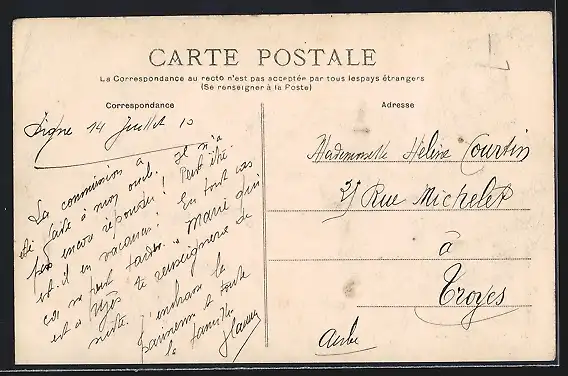 CARTE POSTALE
La Correspondance au recto n'est pas acceptée par tous lespays étrangers
(Se renseigner à la Poste)
Correspondance
Adresse
Digne 14 Juillet 10
La commission a
été faite à mon oncle. Il n'a
pas encore répondu! Peut être
est-il en vacances! En tout cas
ça ne peut tarder. Marie qui
est à te renseignera de
suite.
J'embrasse la
marraine & toute
la famille
Mademoiselle Hélène Courtin
Rue Michelet
à
Troyes
Aube